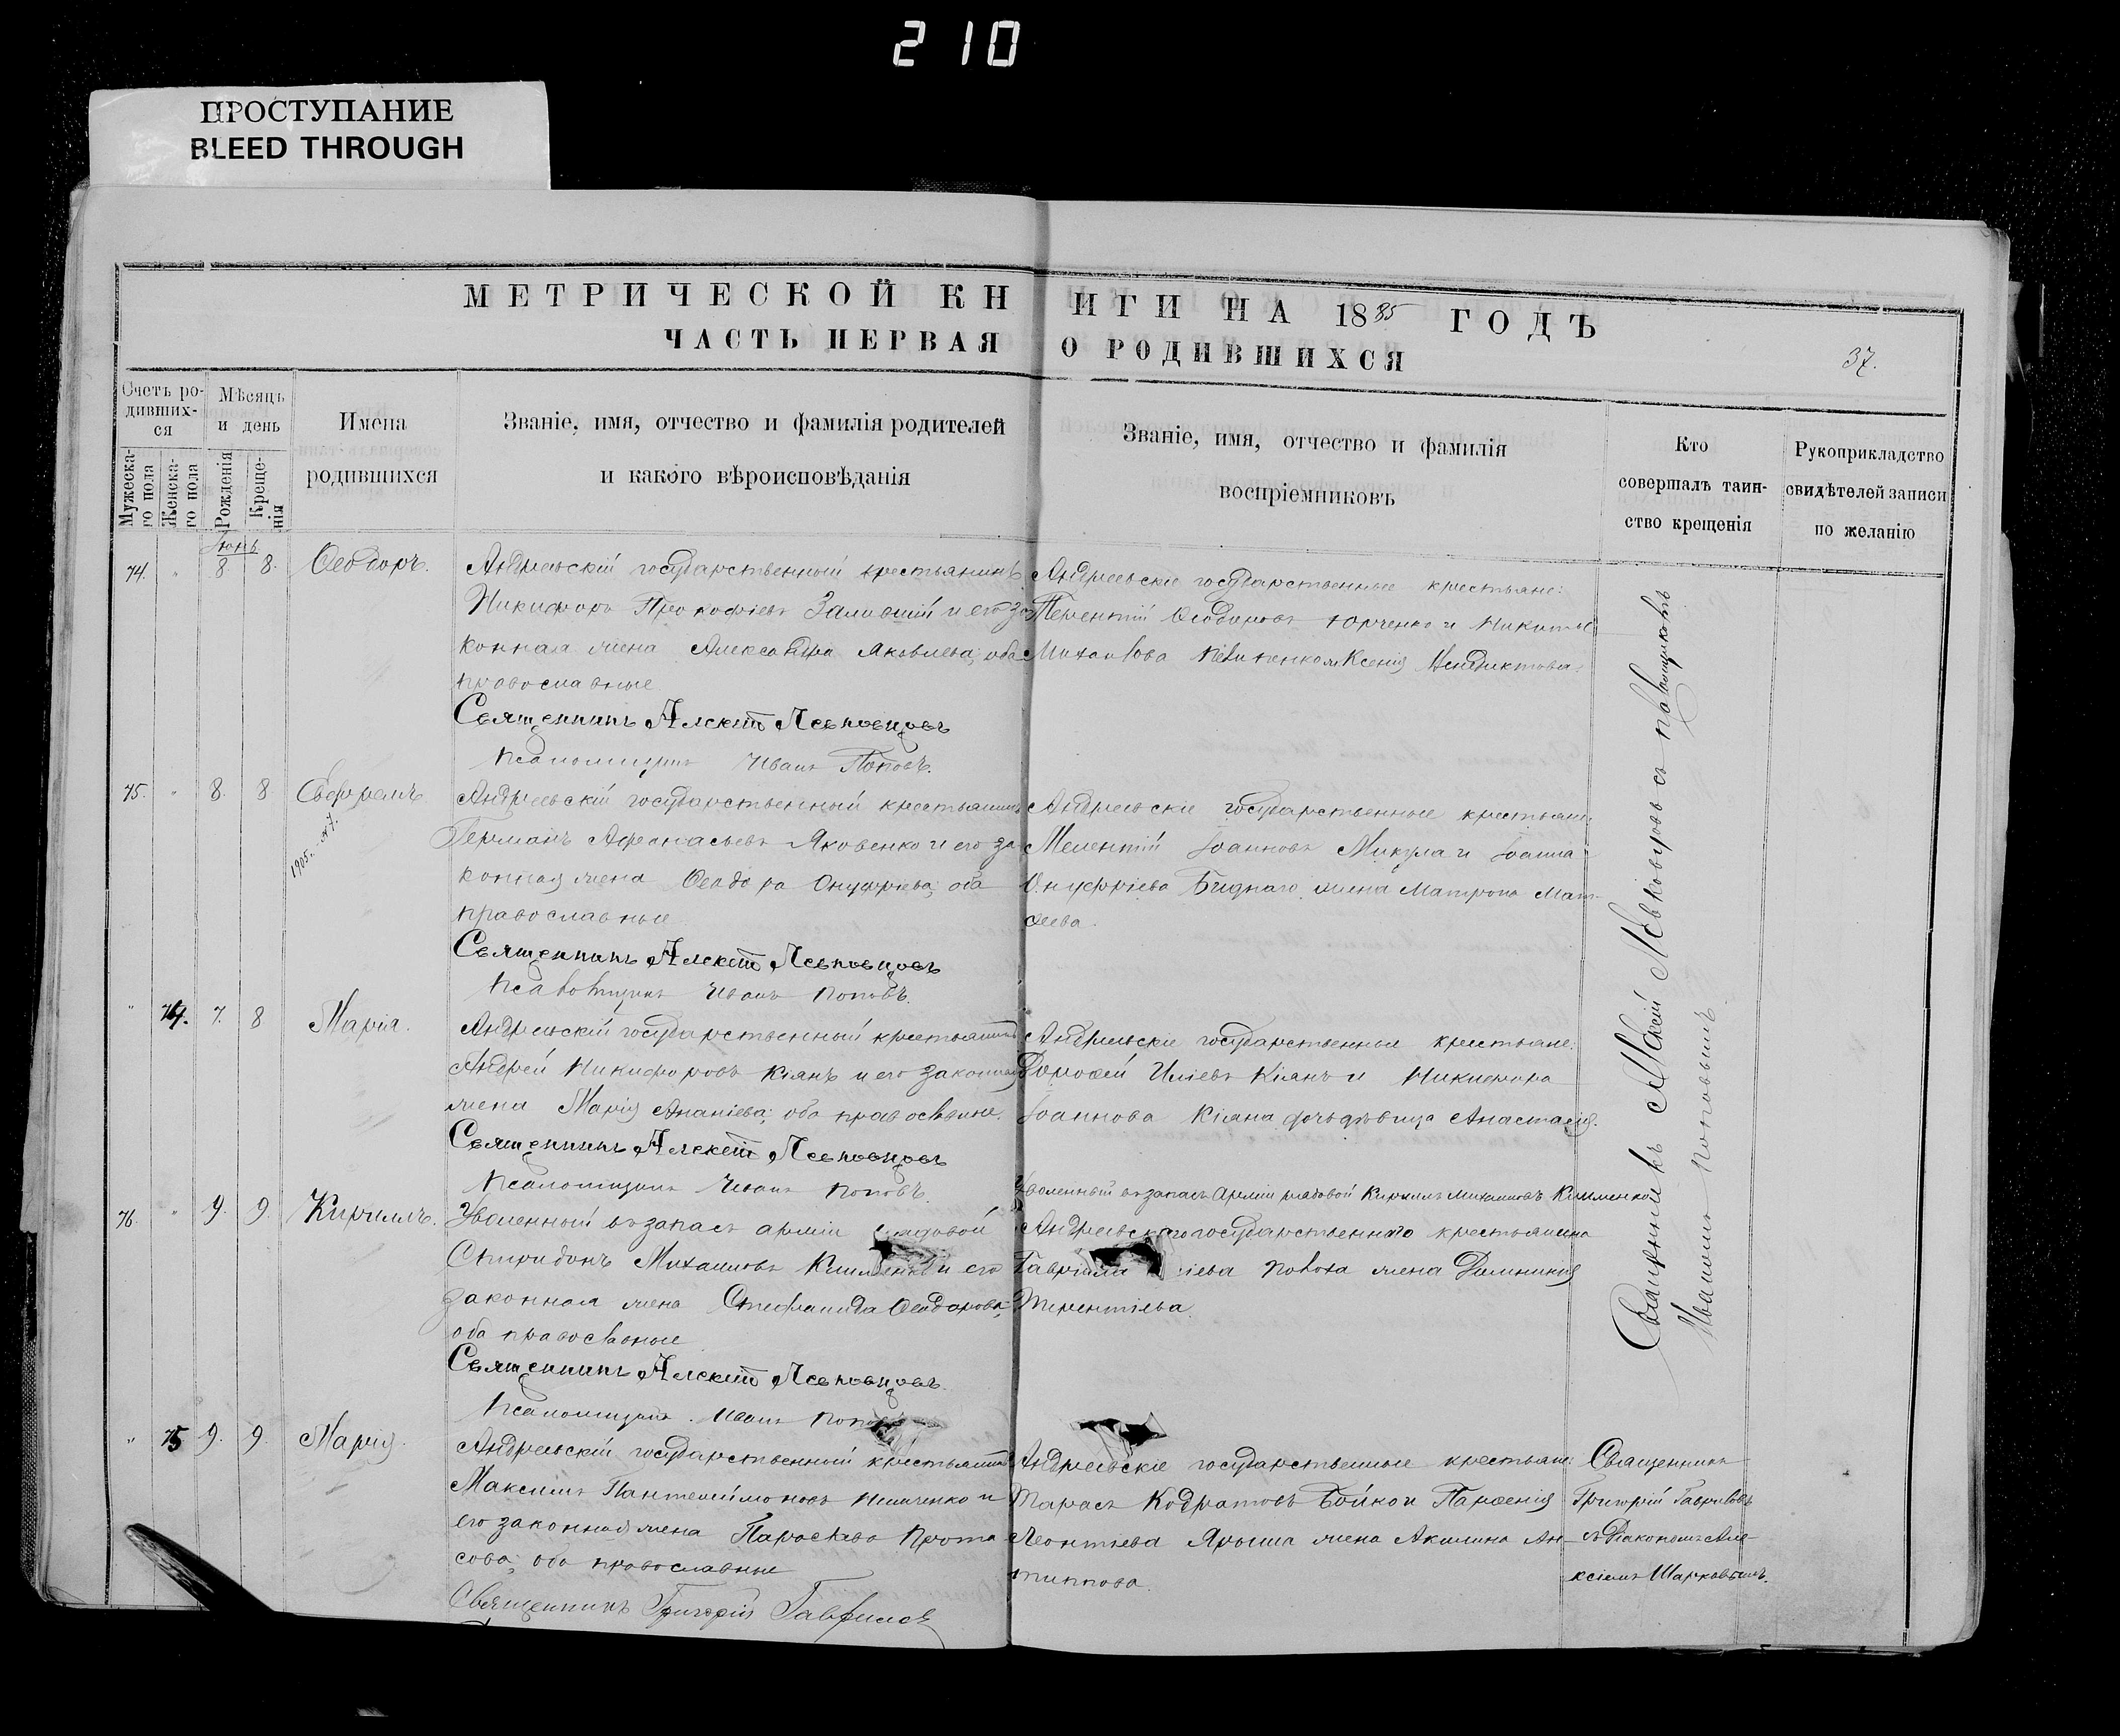 210
ПРОСТУПАНИЕ
BLEED THROUGH
МЕТРИЧЕСКОЙ КНИГИ НА 1885 ГОДЪ
ЧАСТЬ ПЕРВАЯ О РОДИВШИХСЯ
37.
Счетъ ро-
дивших-
ся
Мужеска-
го пола
Женска-
го пола
Мѣсяцъ
и день
Рожденія
Креще-
нія
Имена
родившихся
Званіе, имя, отчество и фамилія родителей
и какого вѣроисповѣданія
Званіе, имя, отчество и фамилія
воспріемниковъ
Кто
совершалъ таин-
ство крещенія
Рукоприкладство
свидѣтелей записи
по желанію
Іюнь
74. " 8 8. Ѳеодоръ.
Андреевскій государственный крестьянинъ
Никифоръ Прокофіевъ и его за-
конная жена Александра Яковлева, оба
православные
Священникъ Алексій Левковцовъ
Псаломщикъ Иванъ Поповъ.
Андреевскіе государственные крестьяне:
Терентій Ѳеодоровъ Юрченко и Никиты
Михайлова жена Ксенія
75. " 8. 8 Ефремъ
1905
Андреевскій государственный крестьянинъ
Германъ Афанасьевъ Яковенко и его за-
конная жена Ѳеодора Онуфріева, оба
православные
Священникъ Алексій Левковцовъ
Псаломщикъ Иванъ Поповъ.
Андреевскіе государственные крестьяне:
Мелентій Іоанновъ Микула и Іоанна
Онуфріева Бѣднаго жена Матрона Мат-
ѳеева.
" 74. 7. 8 Марія.
Андреевскій государственный крестьянинъ
Андрей Никифоровъ Кіянъ и его законная
жена Марія Ананіева; оба православные.
Священникъ Алексій Левковцовъ
Псаломщикъ Иванъ Поповъ.
Андреевскіе государственные крестьяне:
Дороѳей Иліевъ Кіянъ и Никифора
Іоаннова Кіяна дочь дѣвица Анастасія.
76. " 9. 9. Кириллъ.
Уволенный въ запасъ арміи рядовой
Спиридонъ Михаиловъ Клименко и его
законная жена Стефанида Ѳеодорова;
оба православные
Священникъ Алексій Левковцовъ
Псаломщикъ Иванъ Поповъ
Уволенный въ запасъ арміи рядовой Кириллъ Михаиловъ Клименко и
Андреевскаго государственнаго крестьянина
Гавріила жена Домникия
Терентіева.
" 75 9. 9. Марія.
Андреевскій государственный крестьянинъ
Максимъ Пантелеймоновъ и
его законная жена Параскева Прота-
сова; оба православные
Священникъ Григорій Гавриловъ
Андреевскіе государственные крестьяне:
Тарасъ Кодратовъ Бойко и Парѳенія
Леонтіева Ярыша жена Акилина Ан-
типова.
Священникъ Алексій Левковцовъ съ псаломщикомъ
Иваномъ Поповымъ
Священникъ
Григорій Гавриловъ
съ Діакономъ Але-
ксіемъ